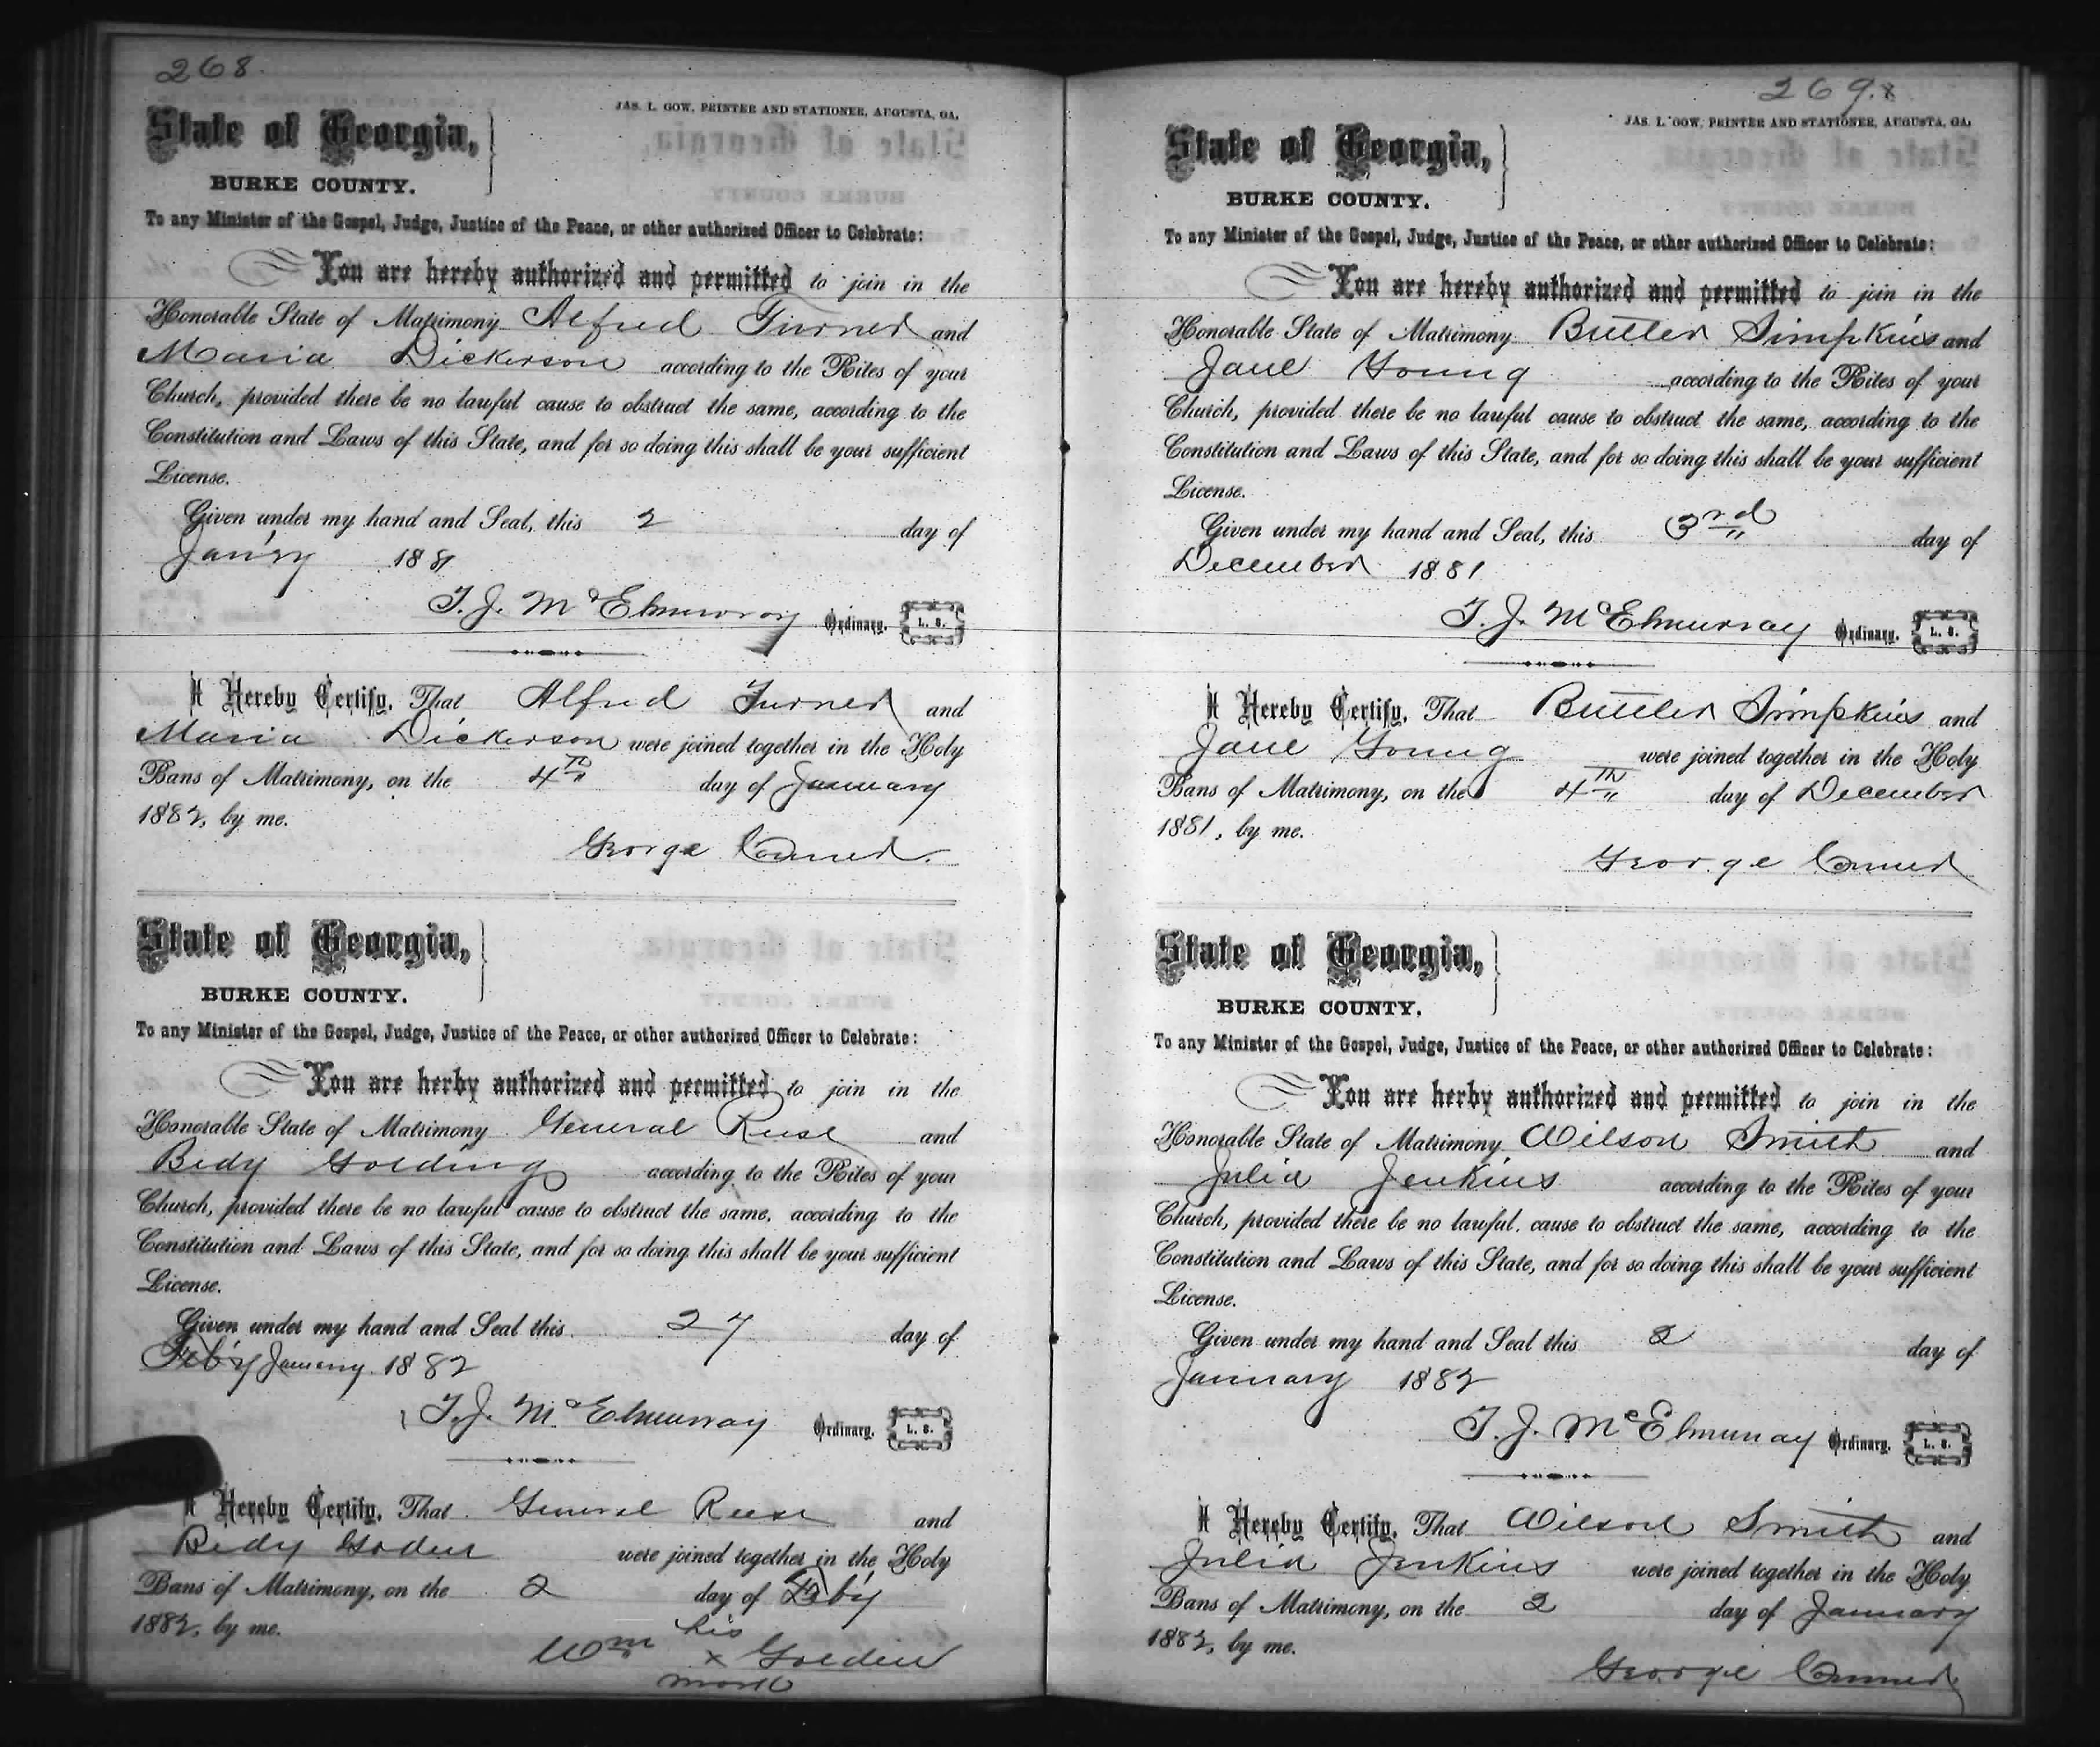 268.
JAS. L. GOW, PRINTER AND STATIONER, AUGUSTA, GA.
State of Georgia,
BURKE COUNTY.
To any Minister of the Gospel, Judge, Justice of the Peace, or other authorized Officer to Celebrate:
You are hereby authorized and permitted to join in the
Honorable State of Matrimony Alfred Turner and
Maria Dickerson according to the Rites of your
Church, provided there be no lawful cause to obstruct the same, according to the
Constitution and Laws of this State, and for so doing this shall be your sufficient
License.
Given under my hand and Seal, this 2 day of
Jan'ry 1881
T. J. McElmurray Ordinary. L. S.
I Hereby Certify, That Alfred Turner and
Maria Dickerson were joined together in the Holy
Bans of Matrimony, on the 4th day of January
1882, by me.
George Conner.
State of Georgia,
BURKE COUNTY.
To any Minister of the Gospel, Judge, Justice of the Peace, or other authorized Officer to Celebrate:
You are herby authorized and permitted to join in the
Honorable State of Matrimony General Reese and
Bedy Golding according to the Rites of your
Church, provided there be no lawful cause to obstruct the same, according to the
Constitution and Laws of this State, and for so doing this shall be your sufficient
License.
Given under my hand and Seal this 27 day of
Feb'y January 1882
T. J. McElmurray Ordinary. L. S.
I Hereby Certify, That General Reese and
Bedy Goden were joined together in the Holy
Bans of Matrimony, on the 2 day of Feb'y
1882, by me.
his
Wm x Golden
mark
269.
JAS. L. GOW, PRINTER AND STATIONER, AUGUSTA, GA.
State of Georgia,
BURKE COUNTY.
To any Minister of the Gospel, Judge, Justice of the Peace, or other authorized Officer to Celebrate:
You are hereby authorized and permitted to join in the
Honorable State of Matrimony Butler Simpkins and
Jane Young according to the Rites of your
Church, provided there be no lawful cause to obstruct the same, according to the
Constitution and Laws of this State, and for so doing this shall be your sufficient
License.
Given under my hand and Seal, this 3rd day of
December 1881
T. J. McElmurray Ordinary. L. S.
I Hereby Certify, That Buttler Simpkins and
Jane Young were joined together in the Holy
Bans of Matrimony, on the 4th day of December
1881, by me.
George Conner
State of Georgia,
BURKE COUNTY.
To any Minister of the Gospel, Judge, Justice of the Peace, or other authorized Officer to Celebrate:
You are herby authorized and permitted to join in the
Honorable State of Matrimony Wilson Smith and
Julia Jenkins according to the Rites of your
Church, provided there be no lawful cause to obstruct the same, according to the
Constitution and Laws of this State, and for so doing this shall be your sufficient
License.
Given under my hand and Seal this 2 day of
January 1882
T. J. McElmurray Ordinary. L. S.
I Hereby Certify, That Wilson Smith and
Julia Jenkins were joined together in the Holy
Bans of Matrimony, on the 2 day of January
1882, by me.
George Conner